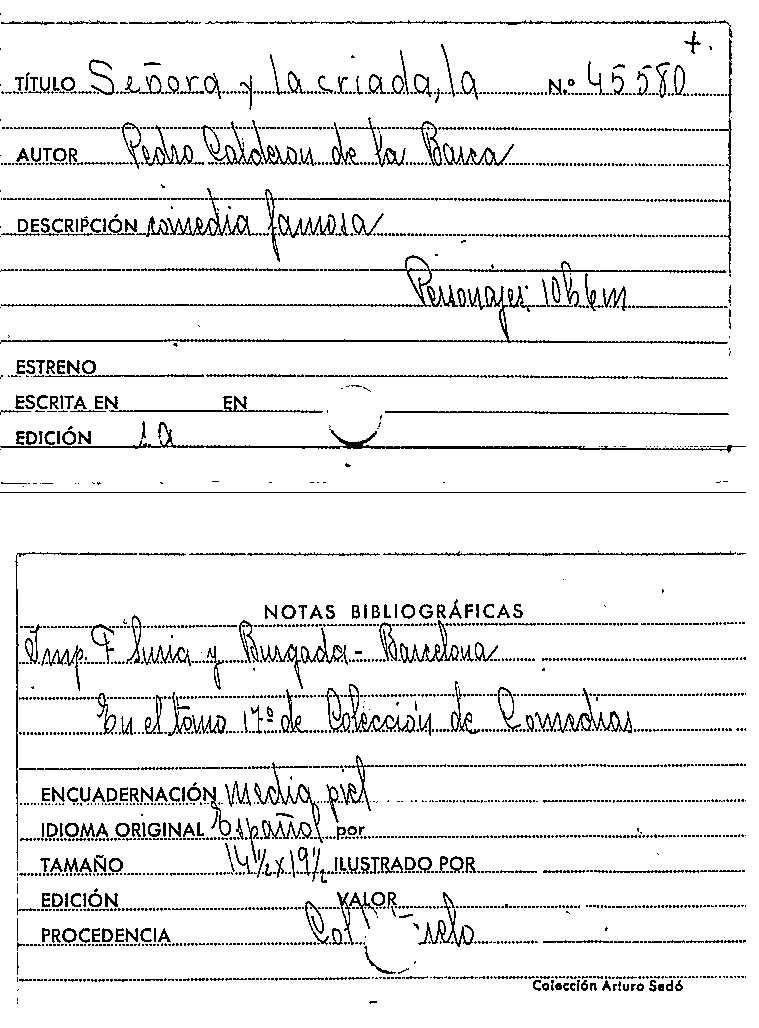 +.
TÍTULO Señora y la criada, la N.º 45580
AUTOR Pedro Calderon de la Barca
DESCRIPCIÓN comedia famosa
Personajes: 10h 6m
ESTRENO
ESCRITA EN EN
EDICIÓN 1a
NOTAS BIBLIOGRÁFICAS
Imp. F Suria y Burgada - Barcelona
En el tomo 17º de Colección de Comedias
ENCUADERNACIÓN media piel
IDIOMA ORIGINAL Español por
TAMAÑO 14½ x 19½ ILUSTRADO POR
EDICIÓN VALOR
PROCEDENCIA
Colección Arturo Sedó